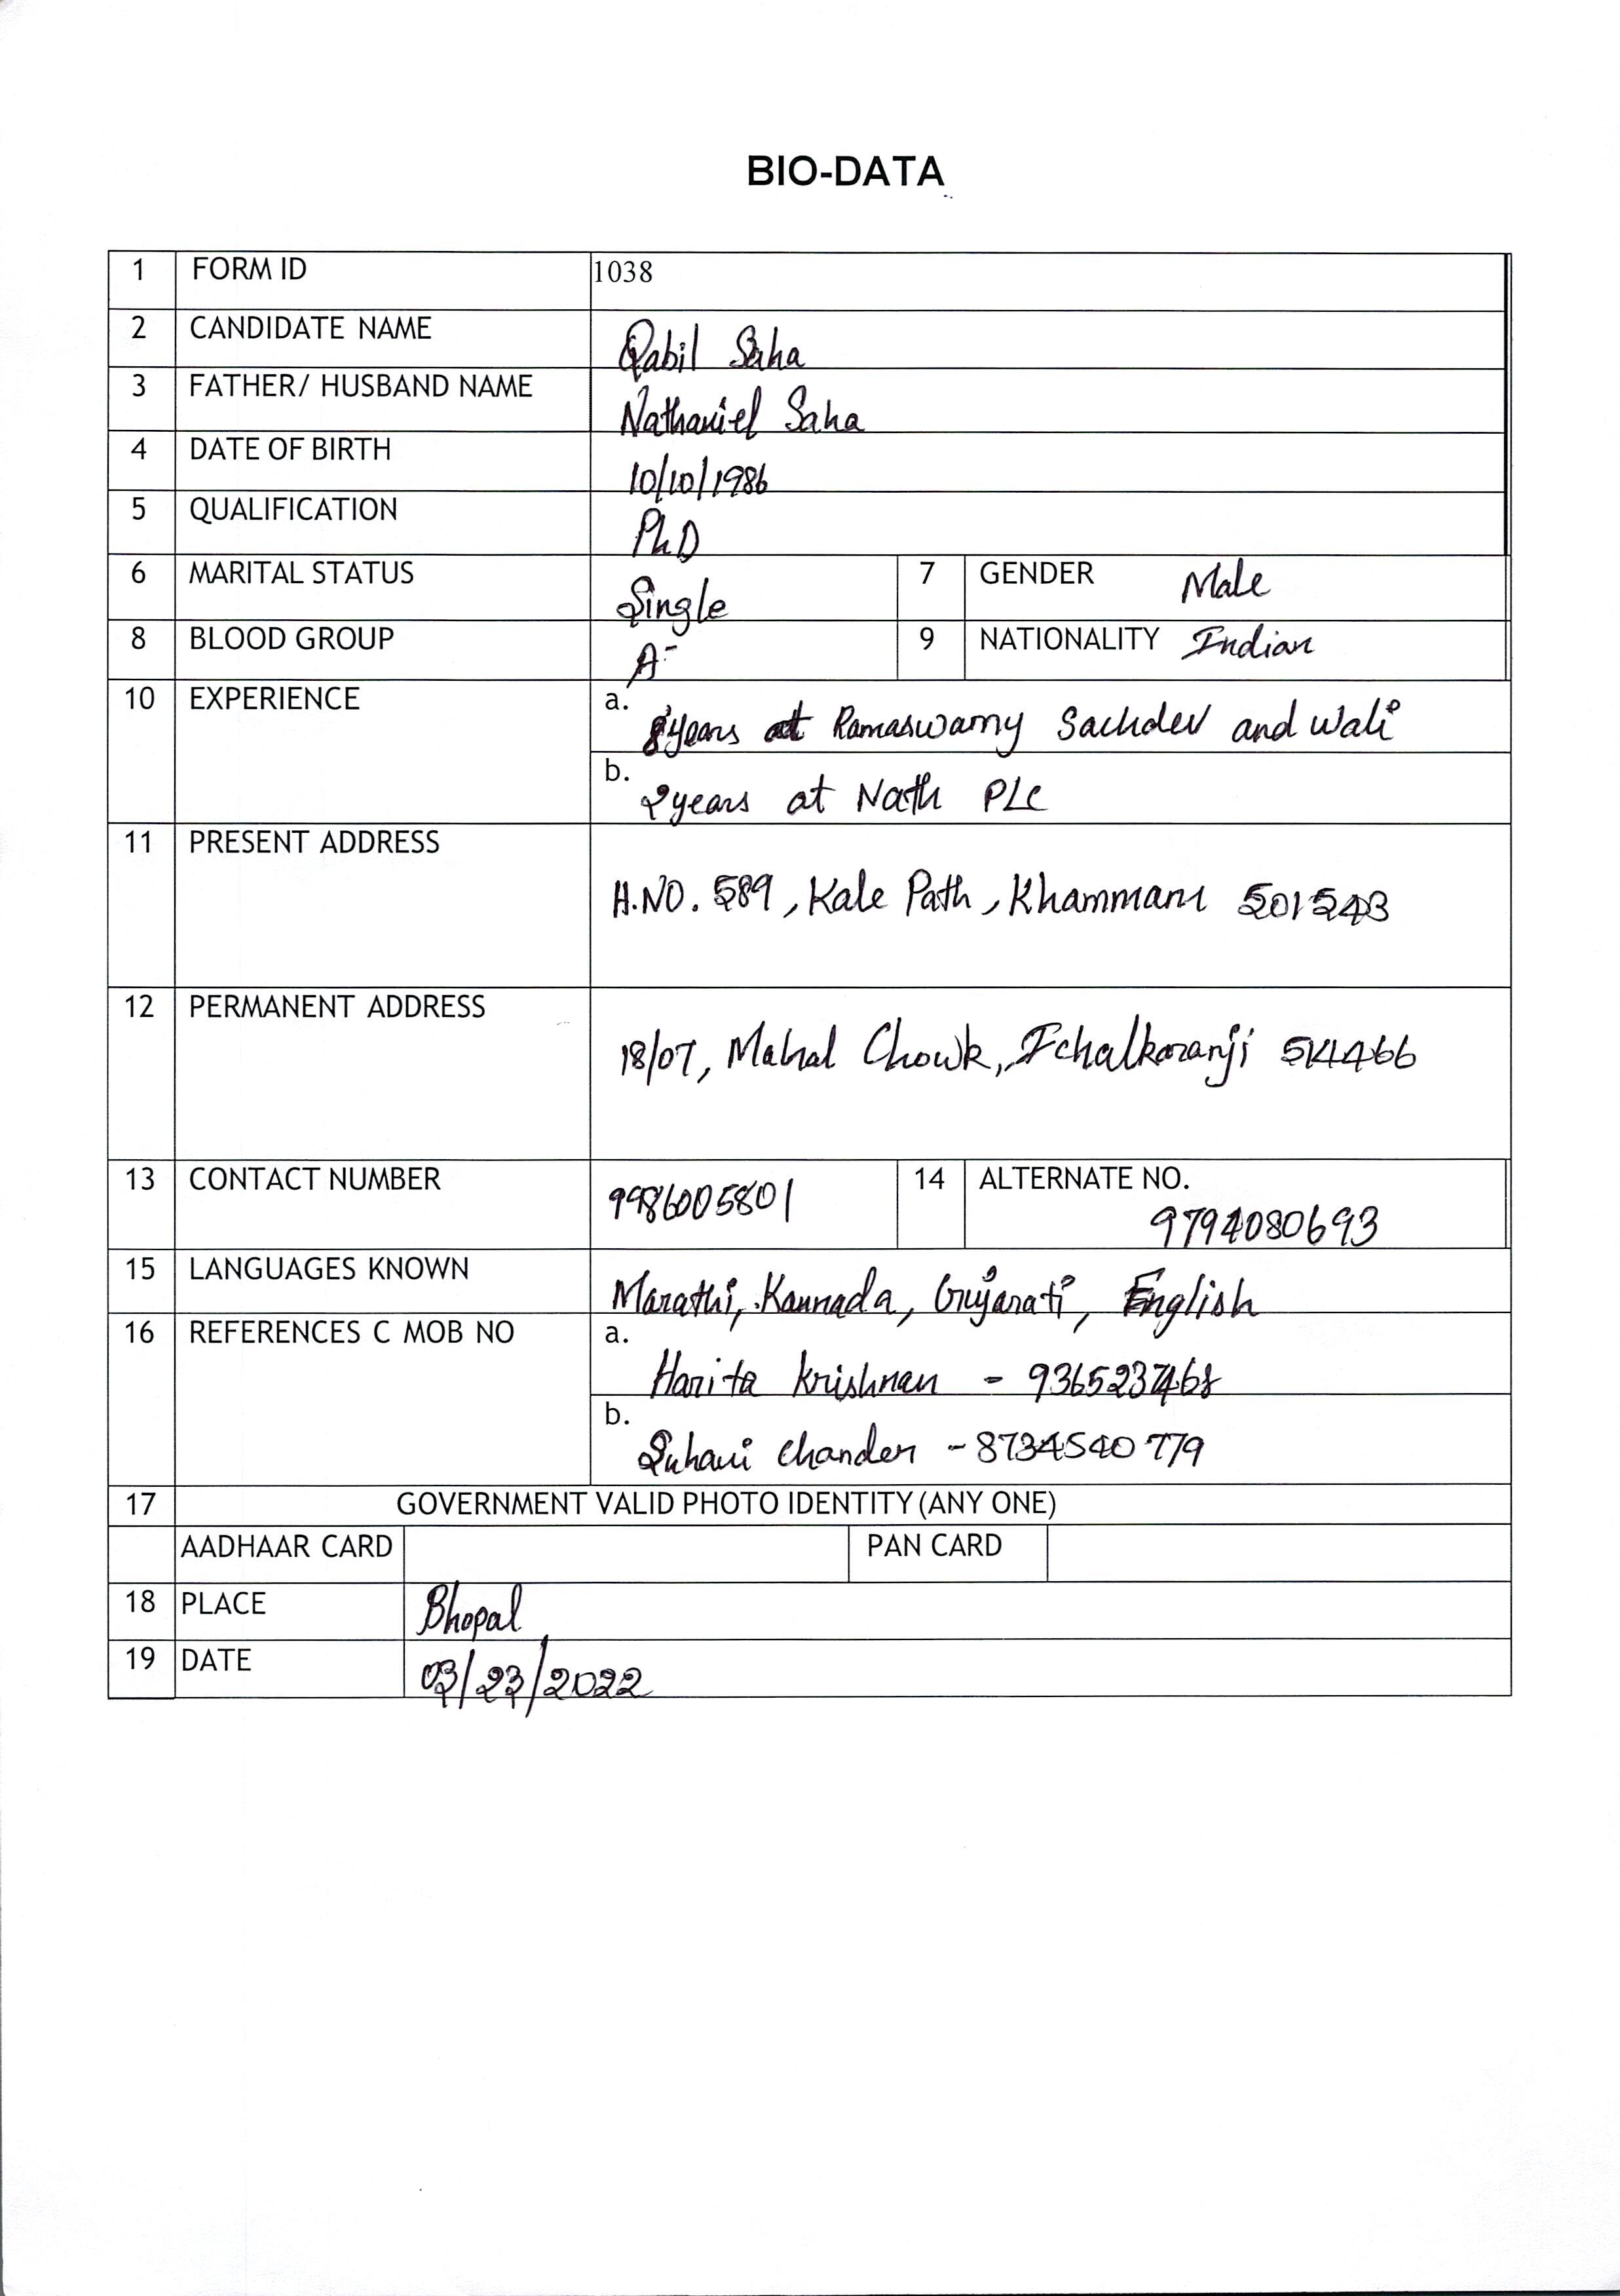 BIO-DATA
1 FORM ID 1038
2 CANDIDATE NAME Qabil Saha
3 FATHER/ HUSBAND NAME Nathaniel Saha
4 DATE OF BIRTH 10/10/1986
5 QUALIFICATION PhD
6 MARITAL STATUS Single 7 GENDER Male
8 BLOOD GROUP A- 9 NATIONALITY Indian
10 EXPERIENCE a. 8 years at Ramaswamy Sachdev and Wali
b. 2 years at Nath PLC
11 PRESENT ADDRESS
H.NO. 589, Kale Path, Khammam 501543
12 PERMANENT ADDRESS
18/07, Mahal Chowk, Ichalkaranji 514466
13 CONTACT NUMBER 9986005801 14 ALTERNATE NO.
9794080693
15 LANGUAGES KNOWN Marathi, Kannada, Gujarati, English
16 REFERENCES C MOB NO a.
Harita Krishnan - 9365237468
b.
Suhani Chander - 8734540779
17 GOVERNMENT VALID PHOTO IDENTITY (ANY ONE)
AADHAAR CARD PAN CARD
18 PLACE Bhopal
19 DATE 03/23/2022